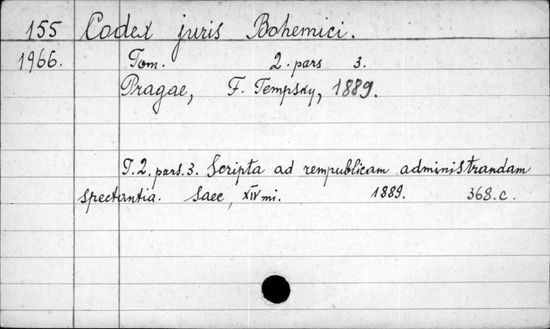 155 Codex juris Bohemici.
1966. Tom. 2. pars 3.
Pragae, F. Tempsky, 1889.
T. 2. pars. 3. Scripta ad rempublicam administrandam
spectantia. Saec, XIV mi. 1889. 368. c.